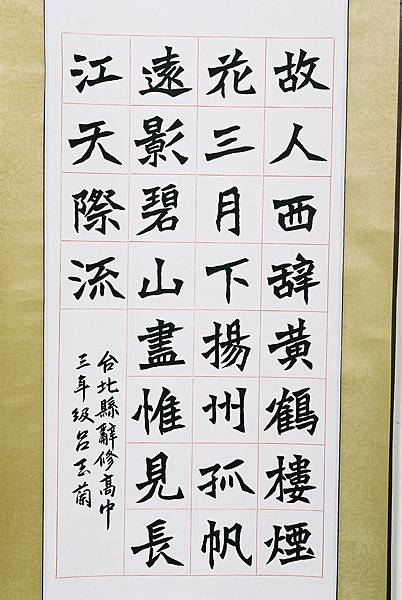 故人西辞黃鶴樓煙
花三月下揚州孤帆
遠影碧山盡惟見長
江天際流
台北縣辭修高中
三年级呂玉蘭